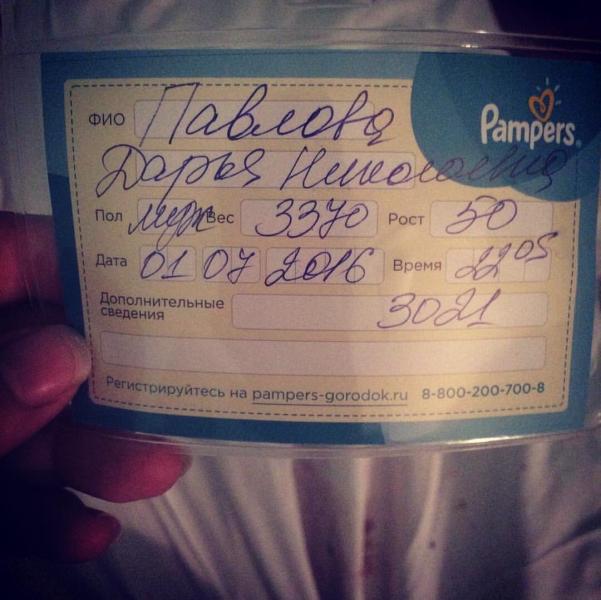 Pampers®
ФИО Павлова
Дарья Николаевна
Пол муж Вес 3370 Рост 50
Дата 01 07 2016 Время 22 05
Дополнительные сведения 3021
Регистрируйтесь на pampers-gorodok.ru 8-800-200-700-8